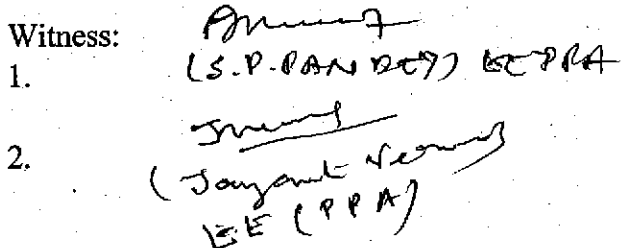 Witness:
1.
(S.P. PANDEY) EE PPA
2.
(Jayant Verma)
EE (PPA)